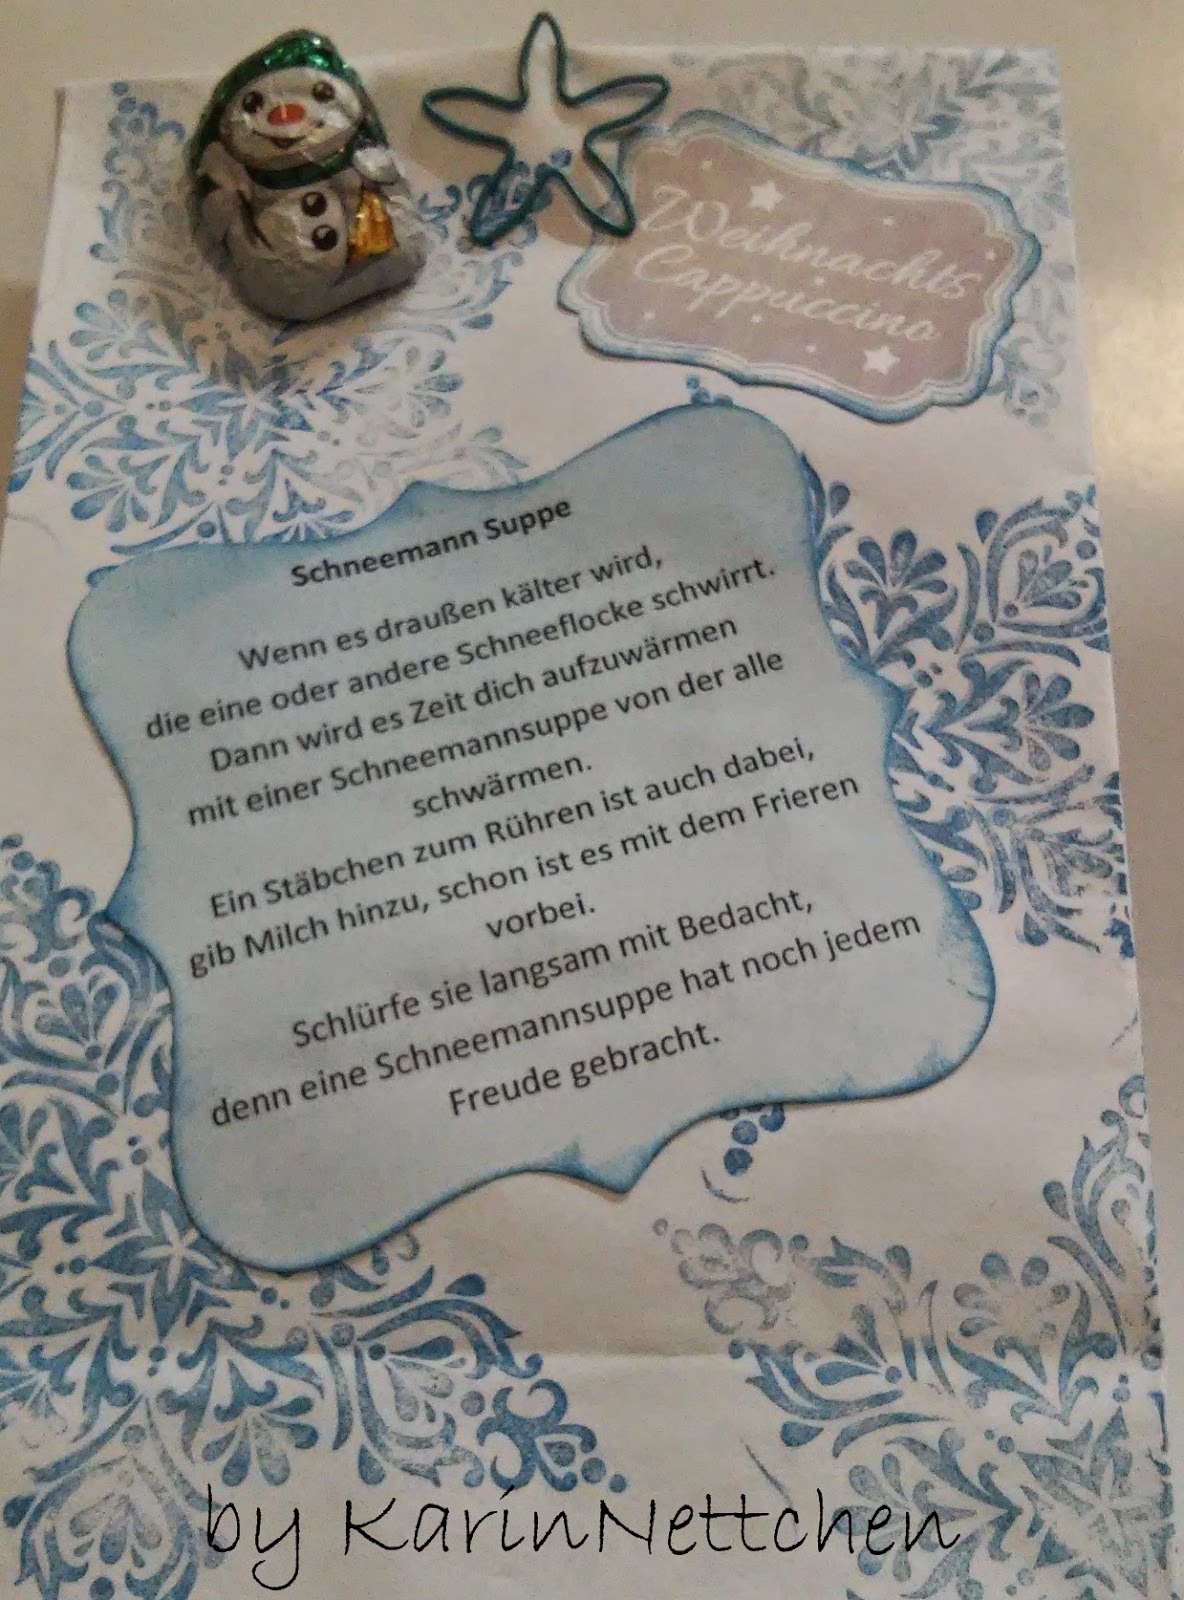 Weihnachts
Cappuccino
Schneemann Suppe
Wenn es draußen kälter wird,
die eine oder andere Schneeflocke schwirrt.
Dann wird es Zeit dich aufzuwärmen
mit einer Schneemannsuppe von der alle
schwärmen.
Ein Stäbchen zum Rühren ist auch dabei,
gib Milch hinzu, schon ist es mit dem Frieren
vorbei.
Schlürfe sie langsam mit Bedacht,
denn eine Schneemannsuppe hat noch jedem
Freude gebracht.
by KarinNettchen